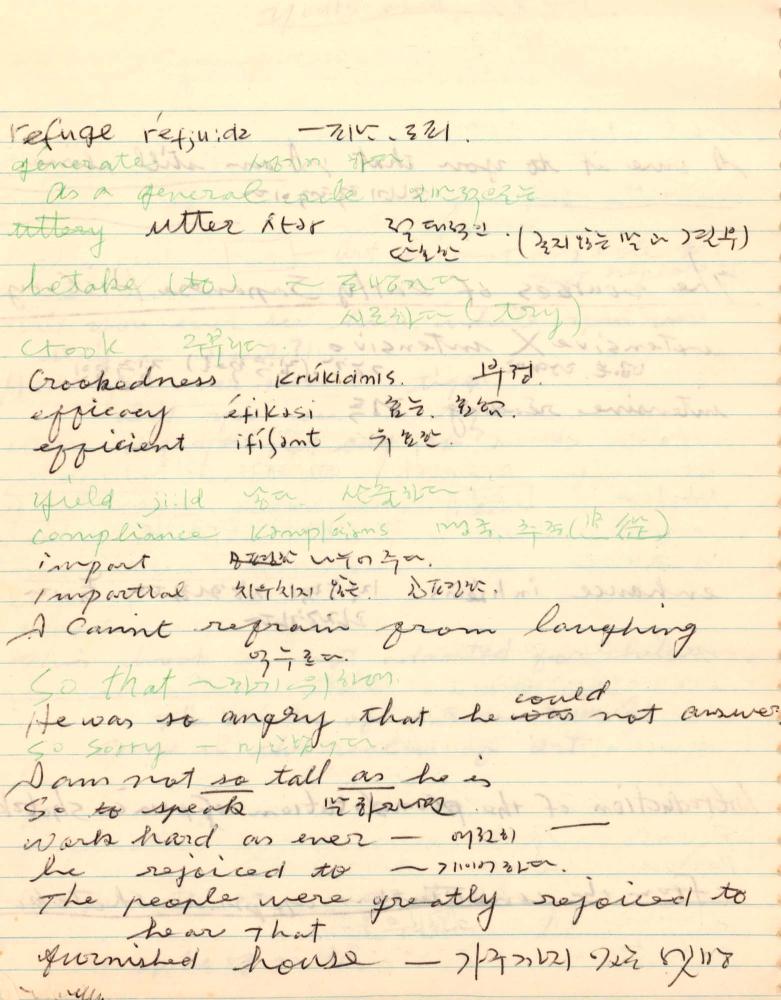 refuge réfju:dʒ — 피난. 도피.
generate
as a general rule 일반적으로는
uttery utter ʌ́tər 절대적인 ·
단호한
betake (to)
시도하다 (try)
crook 구부리다.
Crookedness krúkidnis. 부정.
efficacy éfikəsi 효능. 효험.
efficient ifíʃənt 유효한.
yield ji:ld 낳다. 산출하다.
compliance kəmpláiəns 추종
impart 나누어 주다.
impartial 치우치지 않는. 공평한.
I cannt refrain from laughing
억누르다.
So that ~하기 위하여.
He was so angry that he could not answer
so sorry — 미안합니다
I am not so tall as he is
So to speak 말하자면
work hard as ever — 여전히
he rejoiced to —
The people were greatly rejoiced to
hear that
furnished house — 가구까지 있는 셋방